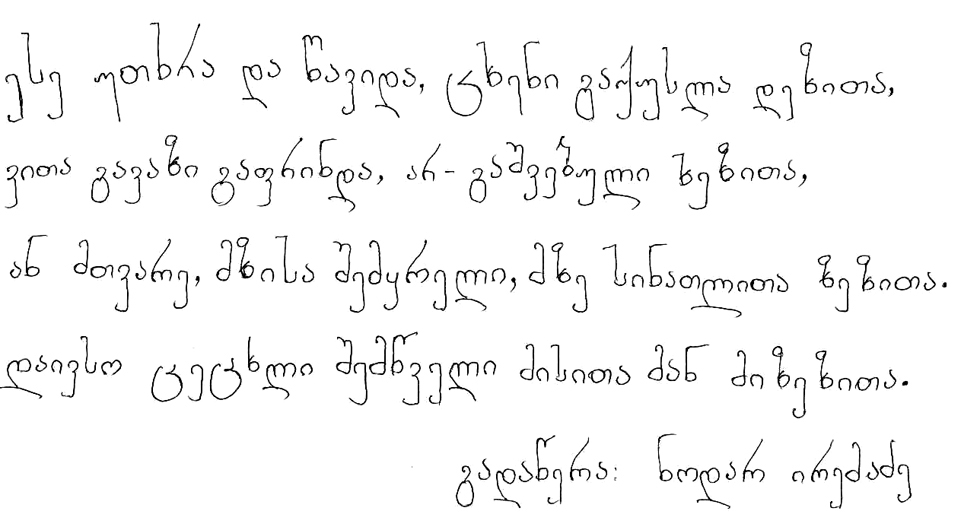 ესე უთხრა და წავიდა, ცხენი გაქუსლა დეზითა,
ვითა გავაზი გაფრინდა, არ-გაშვებული ხეზითა,
ან მთვარე, მზისა შემყრელი, მზე სინათლითა ზეზითა.
დაივსო ცეცხლი შემწველი მისითა მან მიზეზითა.
გადაწერა: ნოდარ ირემაძე